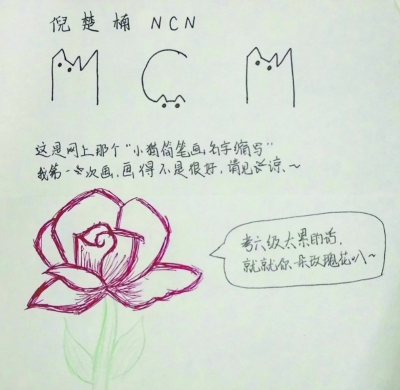 倪楚桶 NCN
MCM
这是网上那个“小猫简笔画名字缩写”
我第一次画,画得不是很好,请见谅.~
考六级太累的话,
就就你一朵玫瑰花叭~